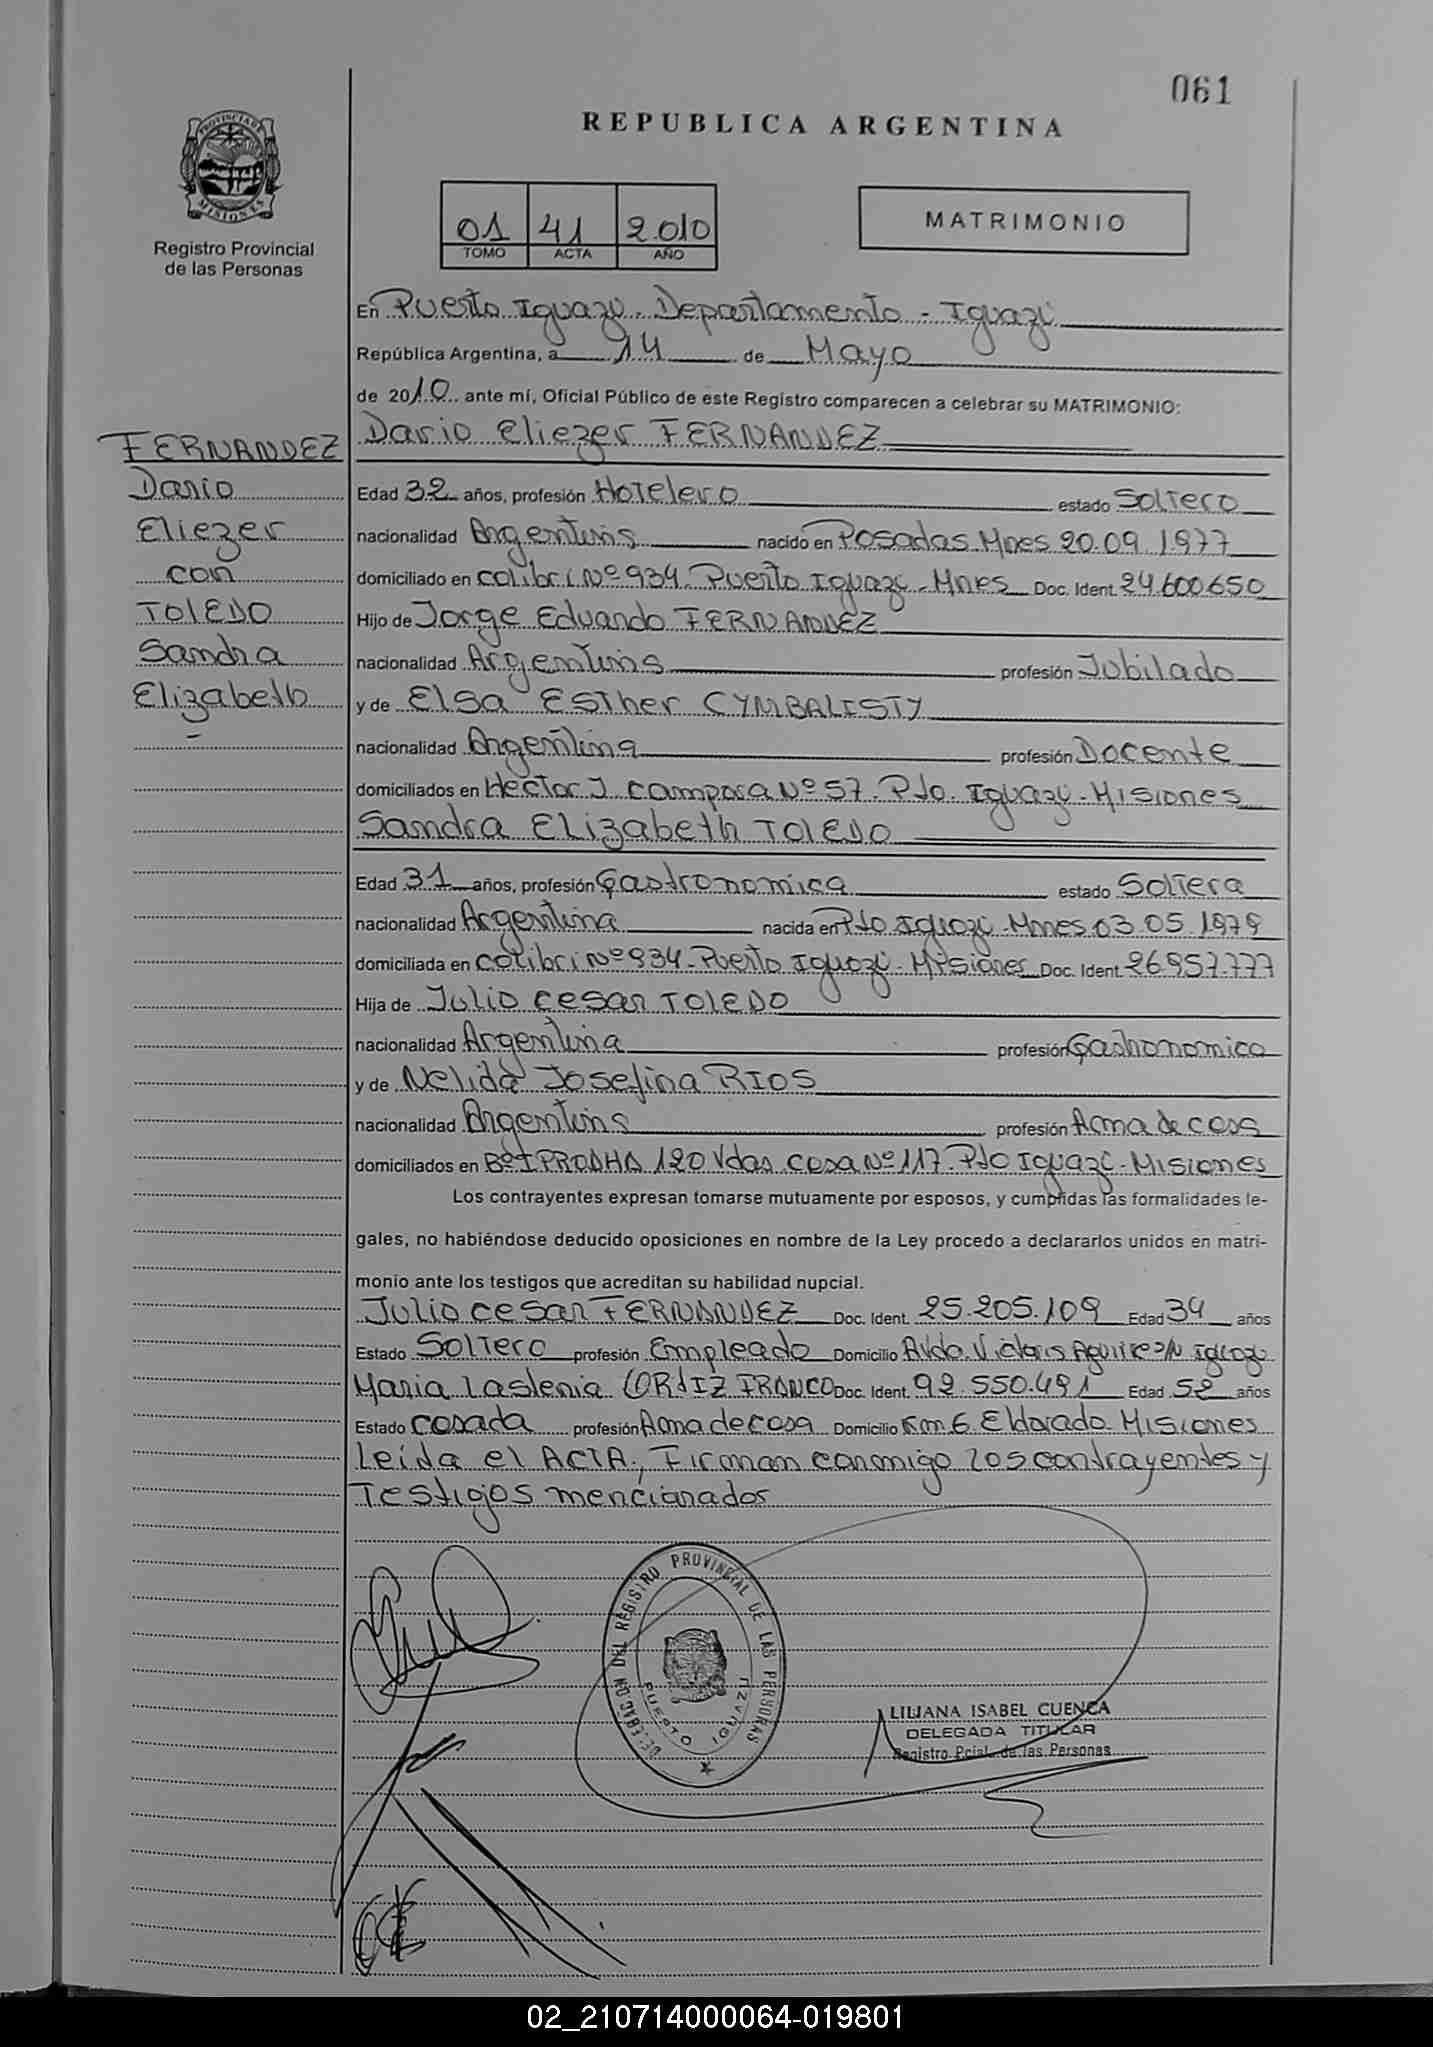 061
REPUBLICA ARGENTINA
PROVINCIA DE
MISIONES
Registro Provincial
de las Personas
01 41 2.010
TOMO ACTA AÑO
MATRIMONIO
En Puerto Iguazú. Departamento - Iguazú
República Argentina, a 14 de Mayo
de 2010 ante mí, Oficial Público de este Registro comparecen a celebrar su MATRIMONIO:
Dario Eliezer FERNANDEZ
FERNANDEZ
Dario
Eliezer
con
TOLEDO
Sandra
Elizabeth
Edad 32 años, profesión Hotelero estado Soltero
nacionalidad Argentina nacido en Posadas. Mnes 20.09.1.977
domiciliado en colibri Nº 934. Puerto Iguazú - Mnes Doc. Ident. 24.600.650
Hijo de Jorge Eduardo FERNANDEZ
nacionalidad Argentina profesión Jubilado
y de Elsa Esther CYMBALISTY
nacionalidad Argentina profesión Docente
domiciliados en Hector J. campora Nº 57. Pto. Iguazú - Misiones
Sandra Elizabeth TOLEDO
Edad 31 años, profesión Gastronomica estado Soltera
nacionalidad Argentina nacida en Pto Iguazú - Mnes 03.05.1979
domiciliada en colibri Nº 934 - Puerto Iguazú - Misiones Doc. Ident. 26.957.777
Hija de Julio cesar TOLEDO
nacionalidad Argentina profesión Gastronomico
y de Nelida Josefina RIOS
nacionalidad Argentina profesión Ama de casa
domiciliados en Bº IPRODHA 120 Vdas casa Nº 117. Pto Iguazú - Misiones
Los contrayentes expresan tomarse mutuamente por esposos, y cumplidas las formalidades le-
gales, no habiéndose deducido oposiciones en nombre de la Ley procedo a declararlos unidos en matri-
monio ante los testigos que acreditan su habilidad nupcial.
Julio cesar FERNANDEZ Doc. Ident. 25.205.109 Edad 34 años
Estado Soltero profesión Empleado Domicilio Avda. Victoria Aguirre s/N
Maria Laslenia ORTIZ FRANCO Doc. Ident. 92.550.491 Edad 52 años
Estado casada profesión Ama de casa Domicilio Km. 6. Eldorado. Misiones
Leida el ACTA, Firman conmigo los contrayentes y
Testigos mencionados
DELEGACION DEL REGISTRO PROVINCIAL DE LAS PERSONAS
PUERTO IGUAZU
LILIANA ISABEL CUENCA
DELEGADA TITULAR
Registro Pcial. de las Personas
02_210714000064-019801